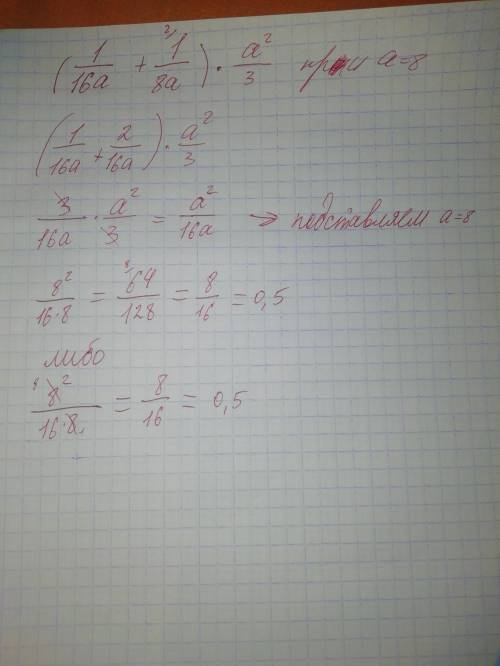 (1/16a + ²⁾1/8a) · a²/3 при a=8
(1/16a + 2/16a) · a²/3
3/16a · a²/3 = a²/16a → подставляем a=8
8²/16·8 = ⁸64/128 = 8/16 = 0,5
либо
⁸8²/16·8 = 8/16 = 0,5